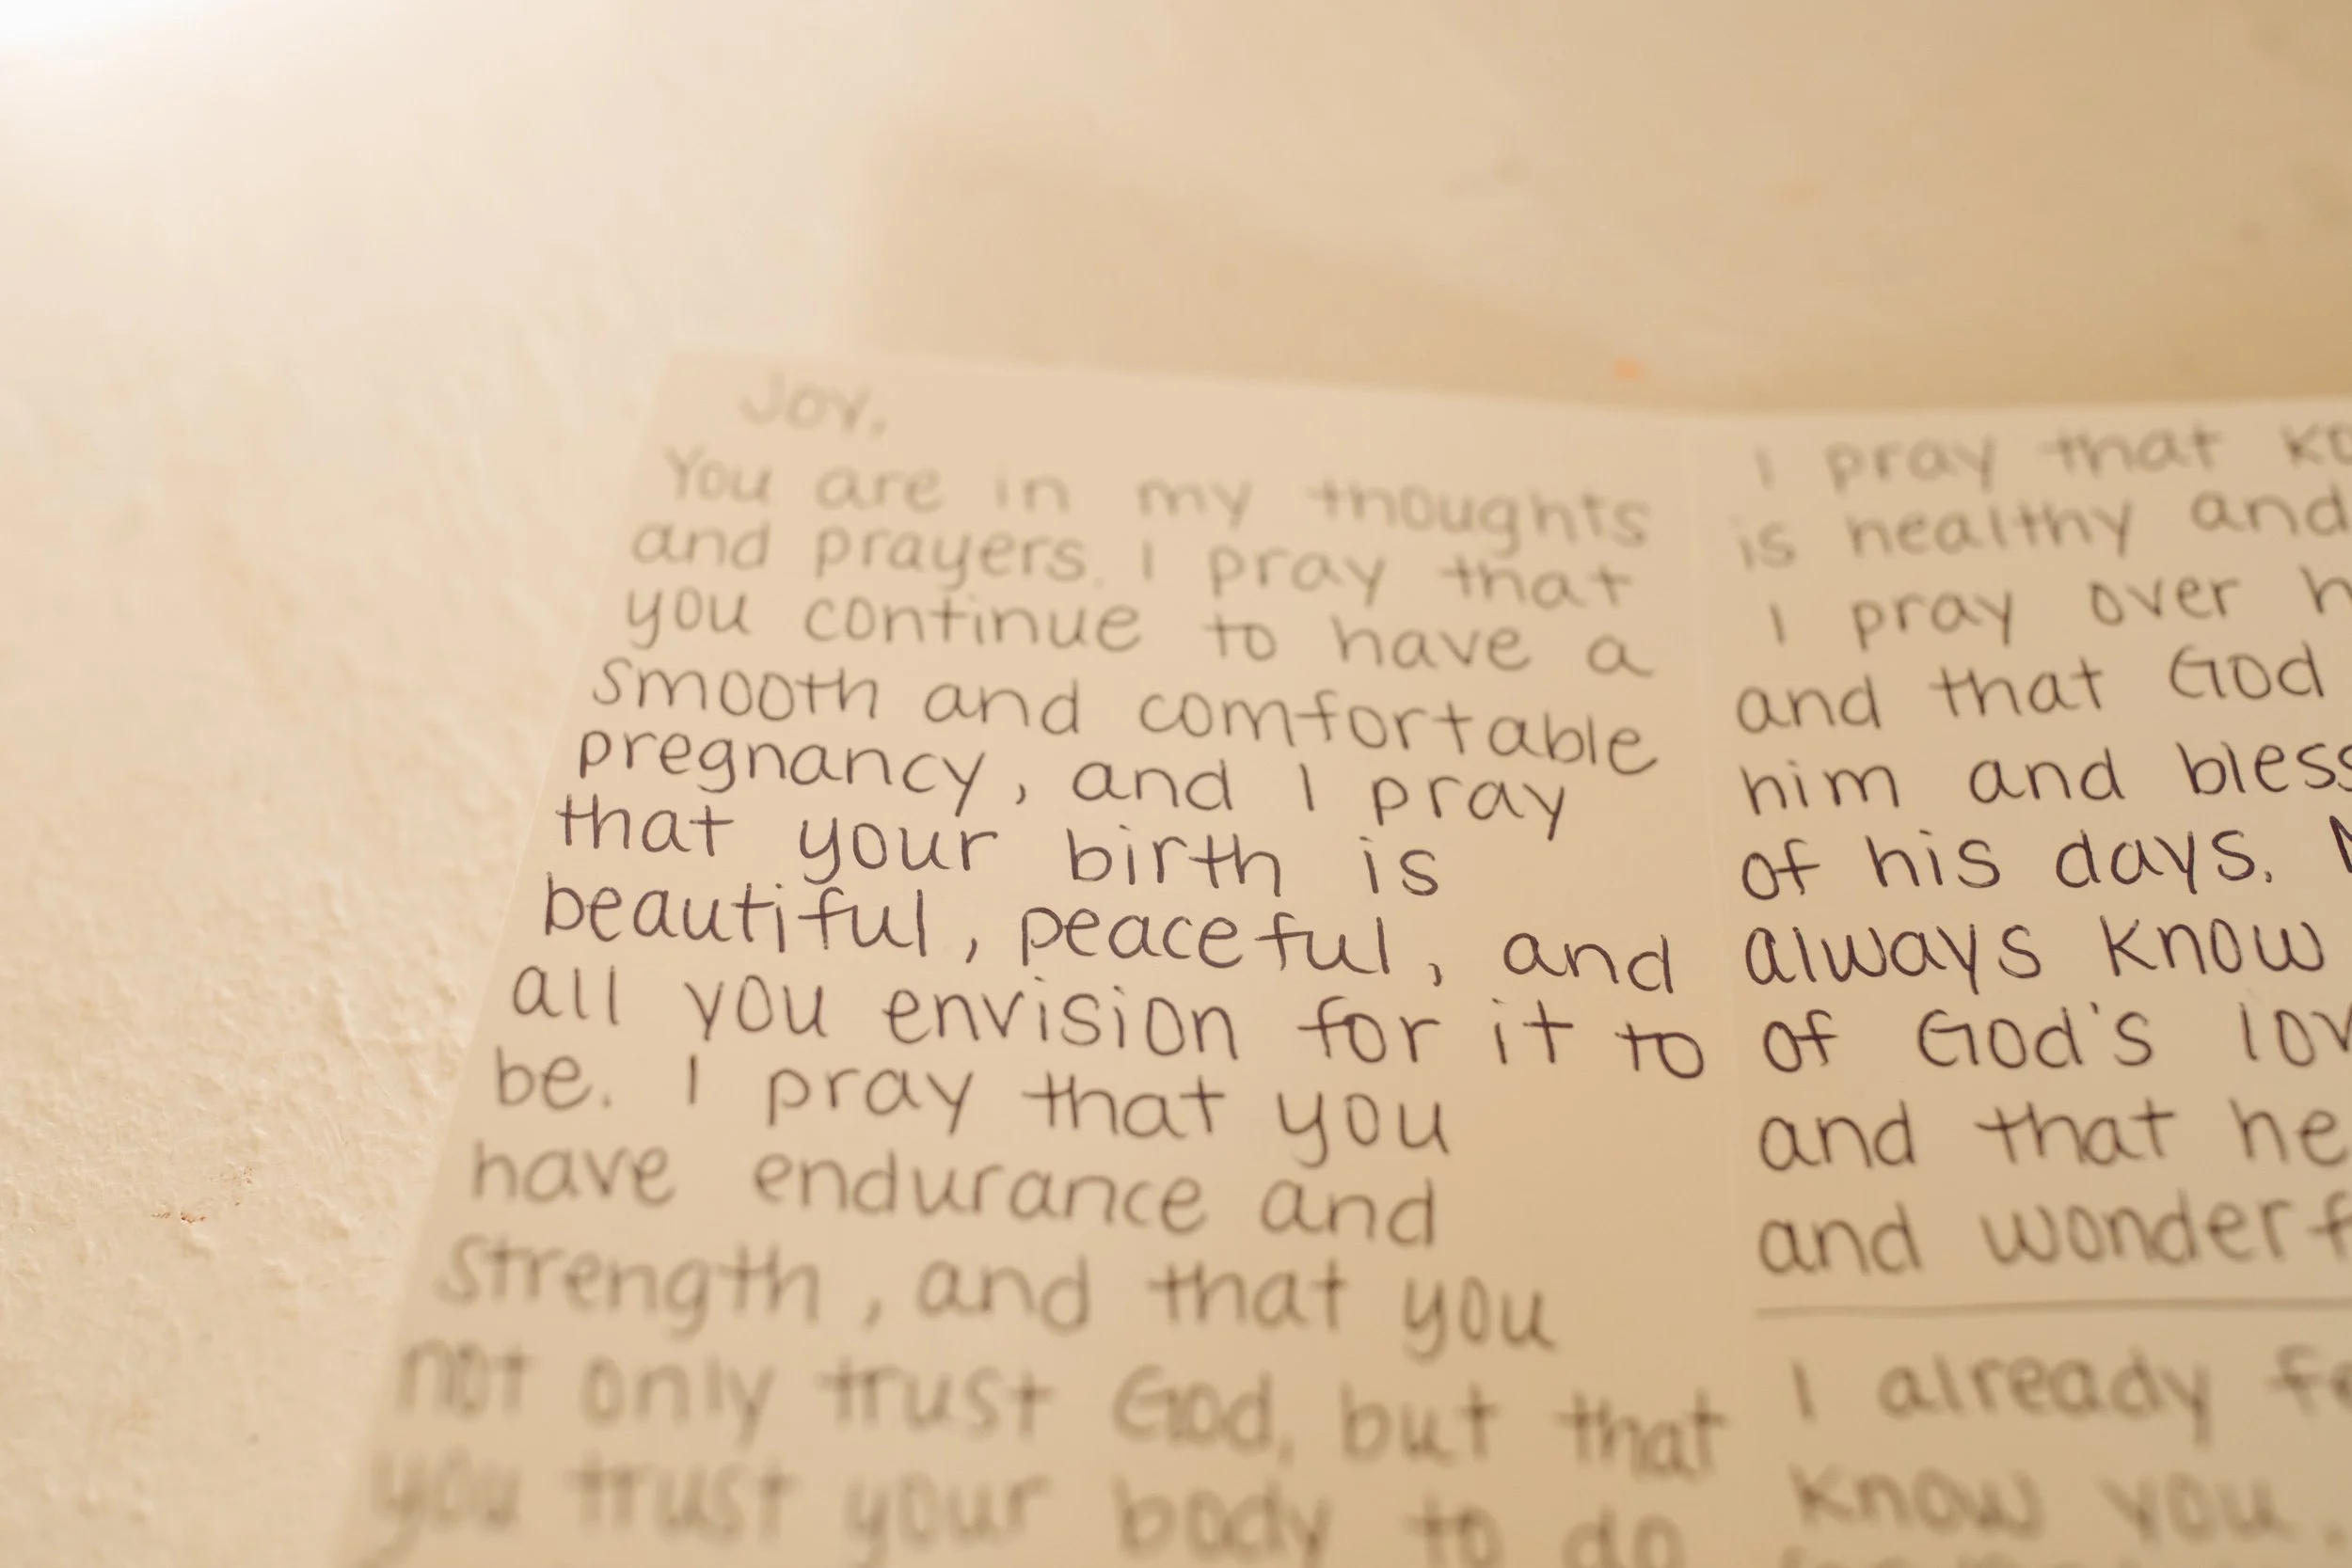 Joy,
You are in my thoughts
and prayers. I pray that
you continue to have a
smooth and comfortable
pregnancy, and I pray
that your birth is
beautiful, peaceful, and
all you envision for it to
be. I pray that you
have endurance and
strength, and that you
not only trust God, but that
you trust your body to do
I pray that
is healthy and
I pray over
and that God
him and bless
of his days.
always know
of God's
and that he
and
I already
know you.